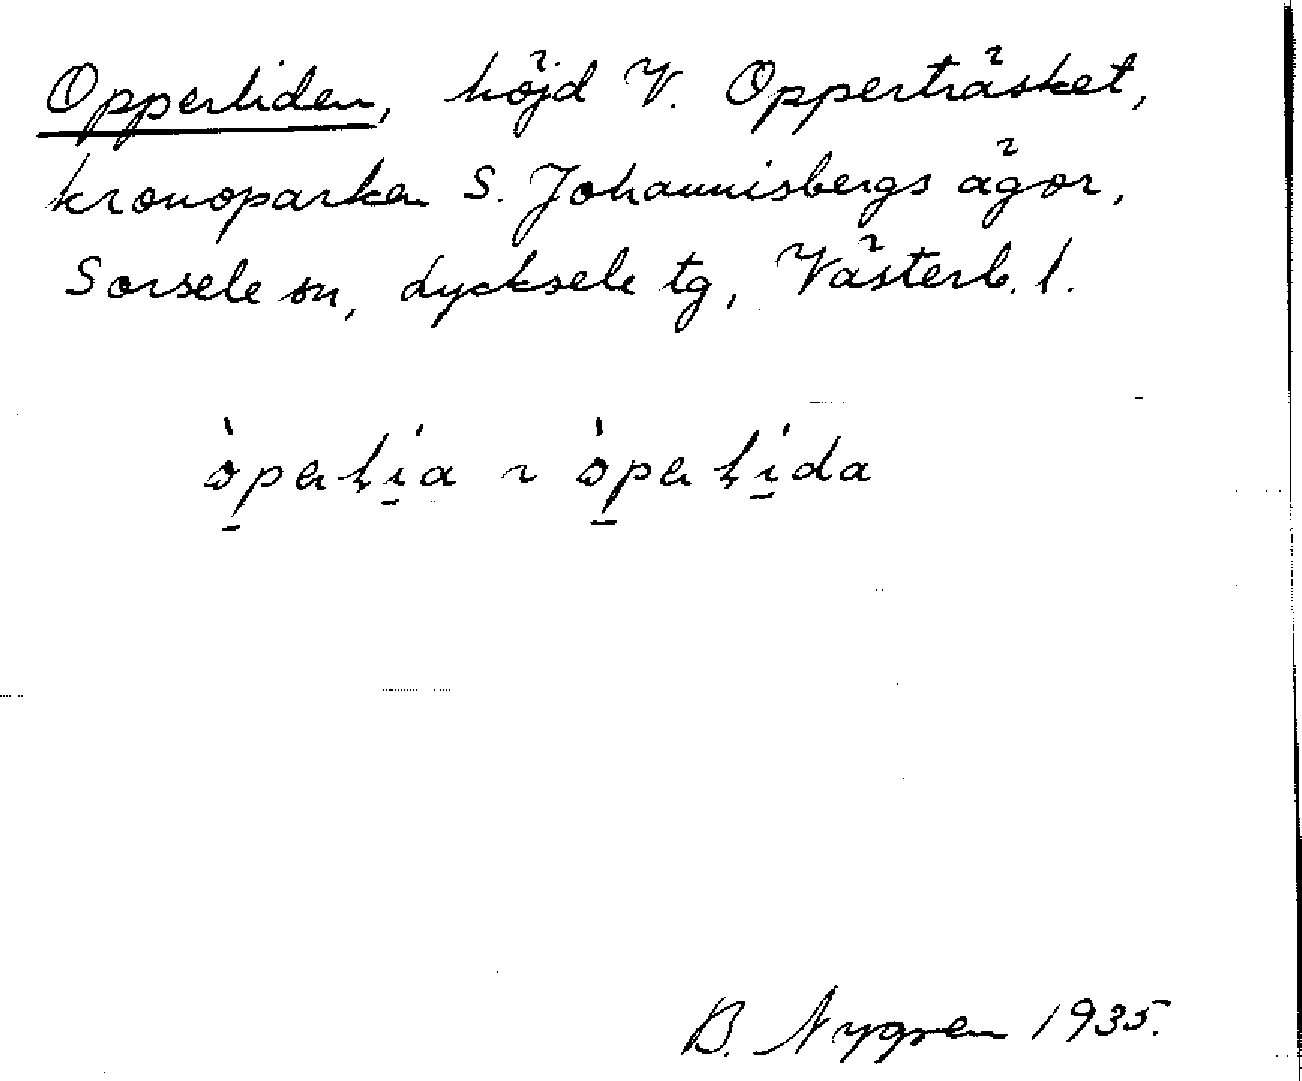 Opperliden, höjd V. Opperträsket,
kronoparken S. Johannisbergs ägor,
Sorsele sn, Lycksele tg, Västerb. l.
òpeḷi̱a ~ òpeḷi̱da
B. Nygren 1935.